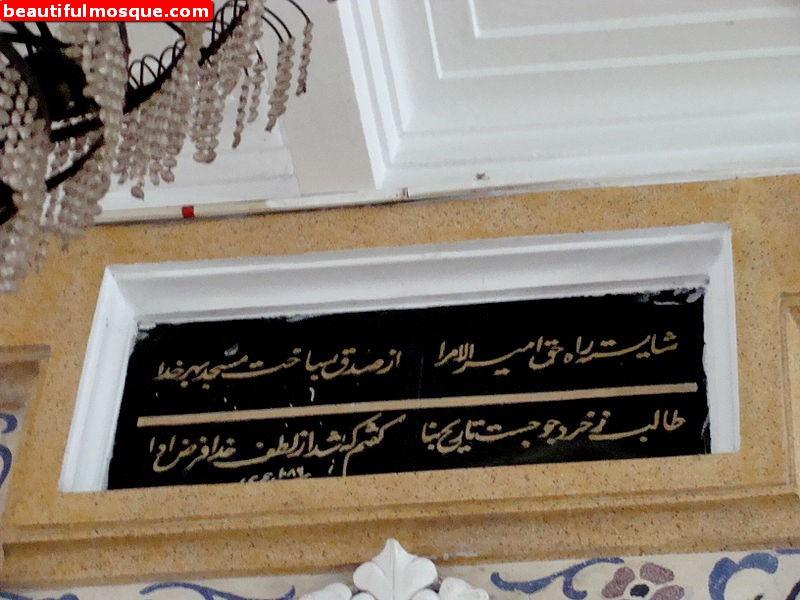 beautifulmosque.com
شایسته راه حق امیر الامرا از صدق بساخت مسجد بهر خدا
طالب ز خرد چو جست تاریخ بنا گفتم که شد از لطف خدا فرض ادا